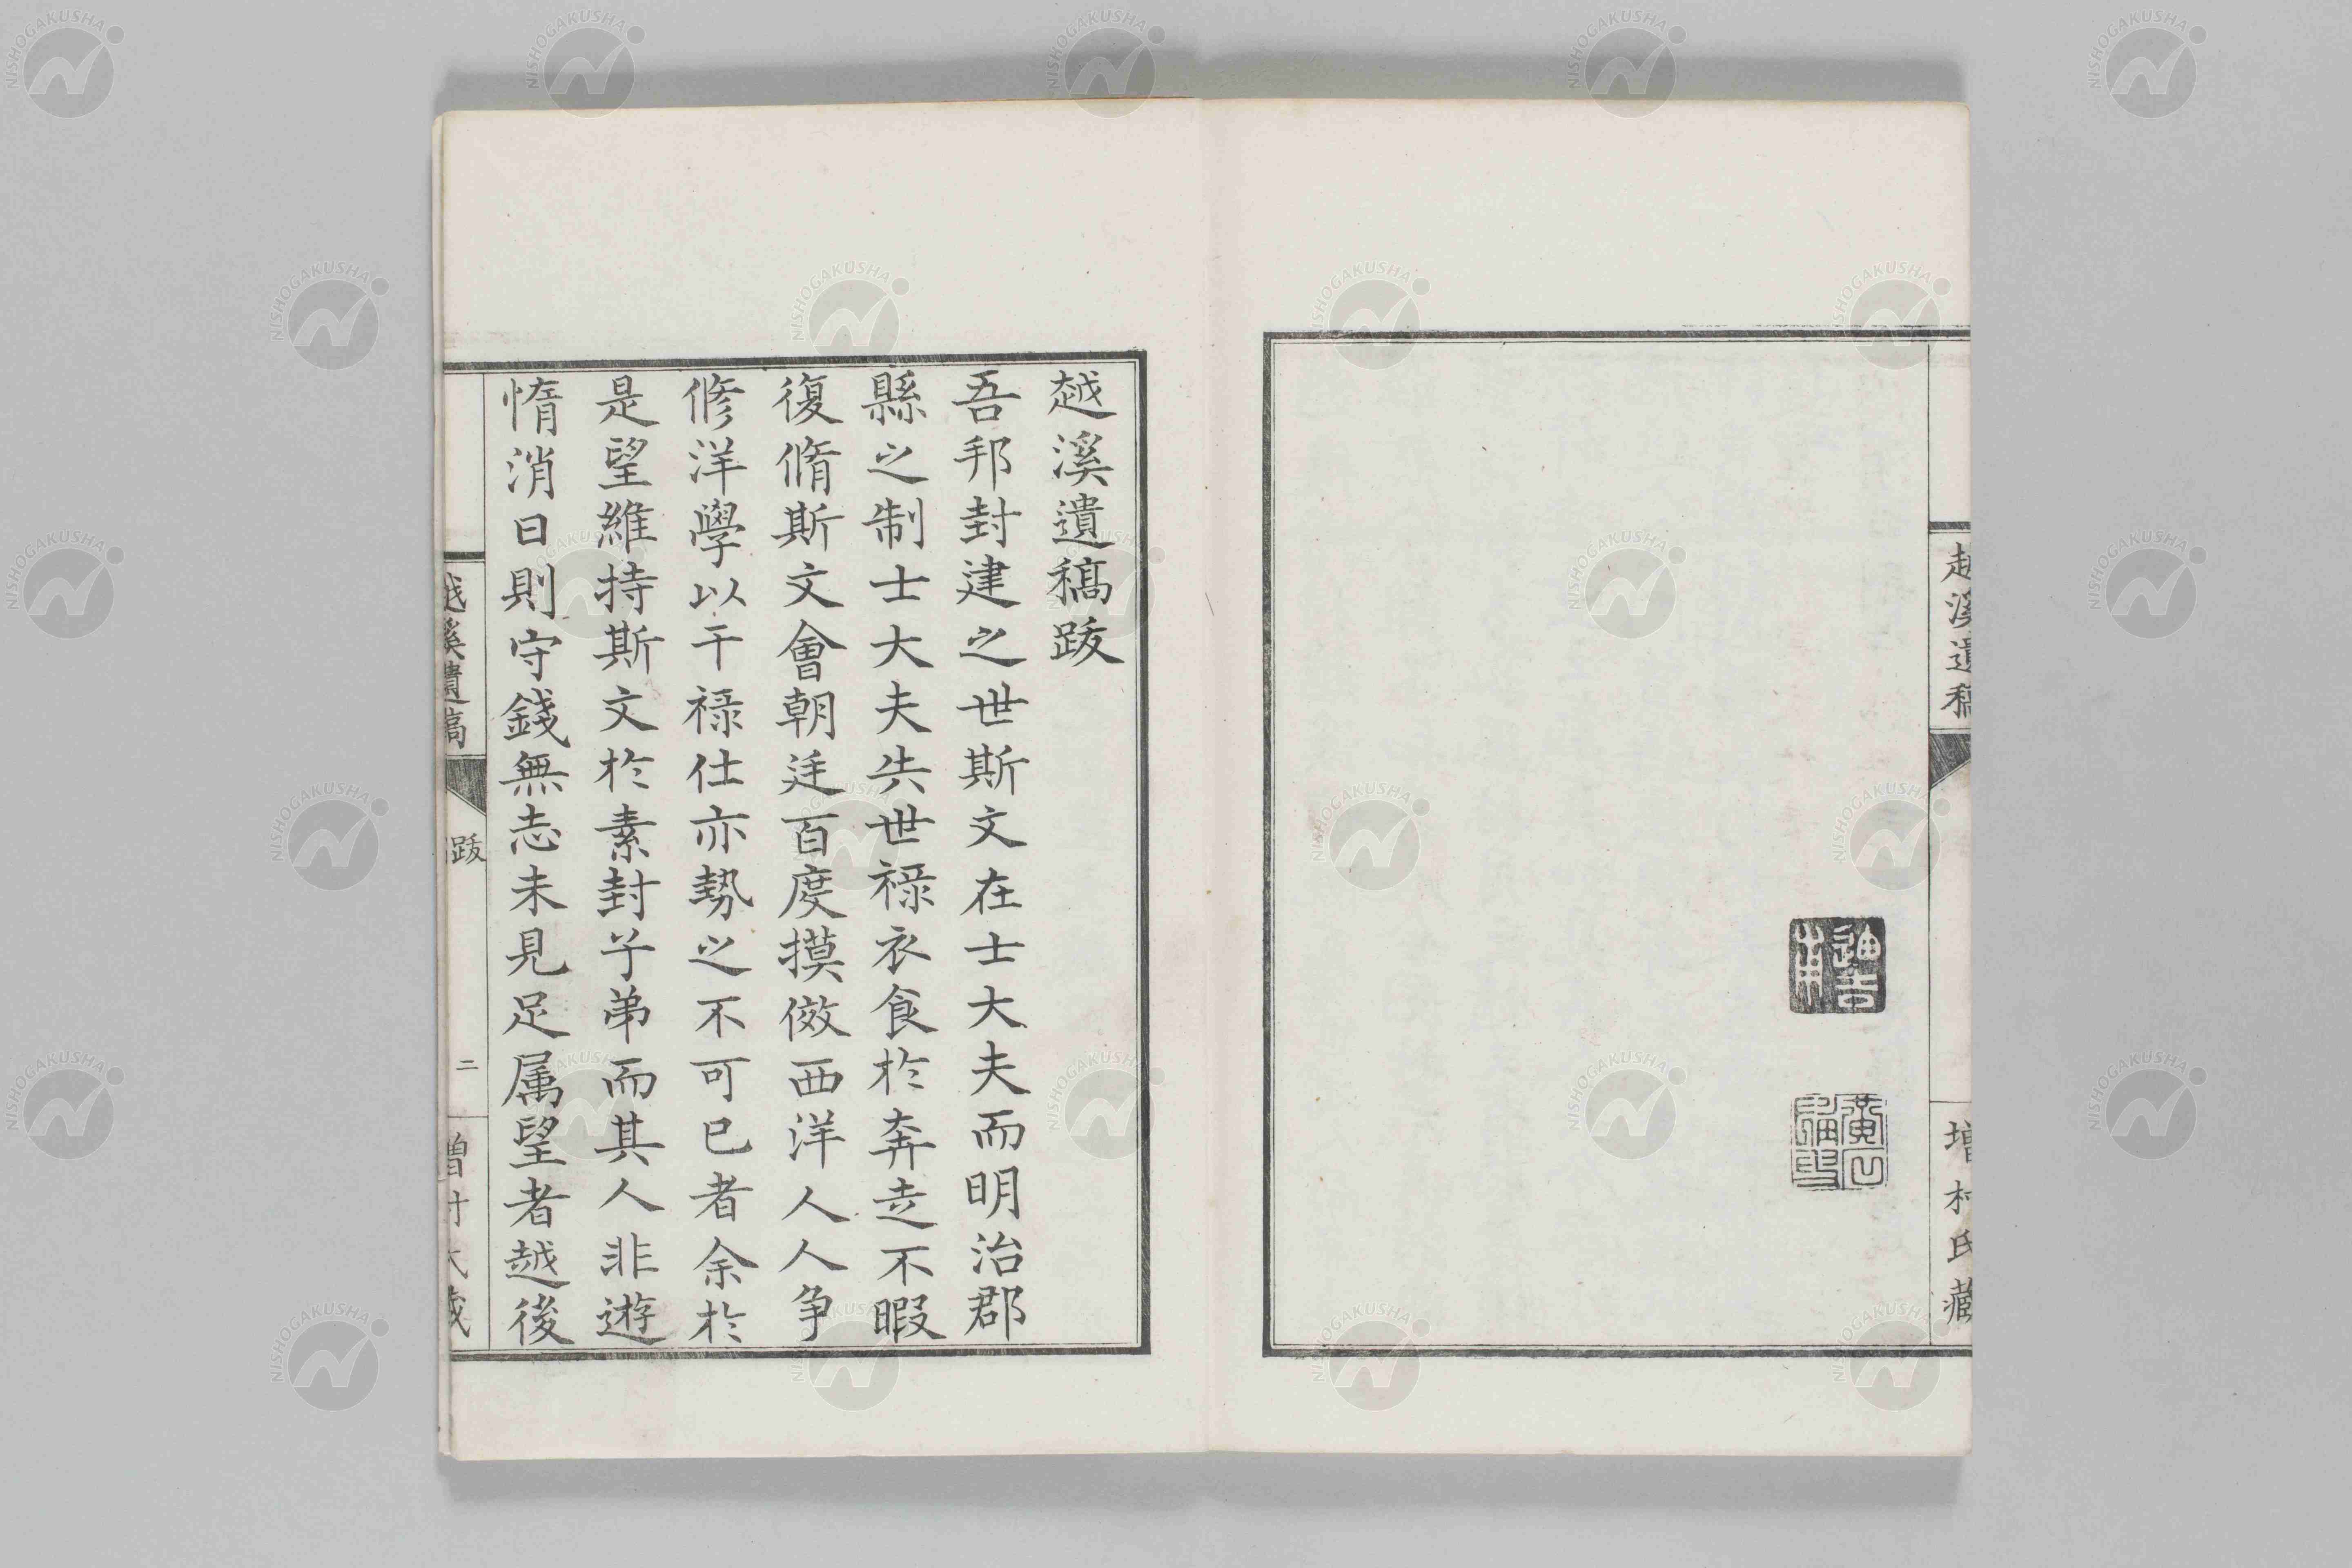 越溪遺稿
增村氏藏
越溪遺稿跋
吾邦封建之世斯文在士大夫而明治郡
縣之制士大夫失世祿衣食於奔走不暇
復脩斯文會朝廷百度摸倣西洋人人争
修洋學以干祿仕亦勢之不可已者余於
是望維持斯文於素封子弟而其人非遊
惰消日則守錢無志未見足属望者越後
越溪遺稿
跋
二
增村氏藏
NISHOGAKUSHA